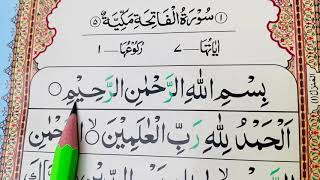 سُوْرَةُ الْفَاتِحَةِ مَكِّيَّةٌ ﴿١﴾ ﴿٥﴾
اٰیَاتُهَا ۷ رُكُوْعُهَا ۱
بِسْمِ اللّٰهِ الرَّحْمٰنِ الرَّحِیْمِ ○
اَلْحَمْدُ لِلّٰهِ رَبِّ الْعٰلَمِیْنَ ○ لا الرَّحْمٰنِ